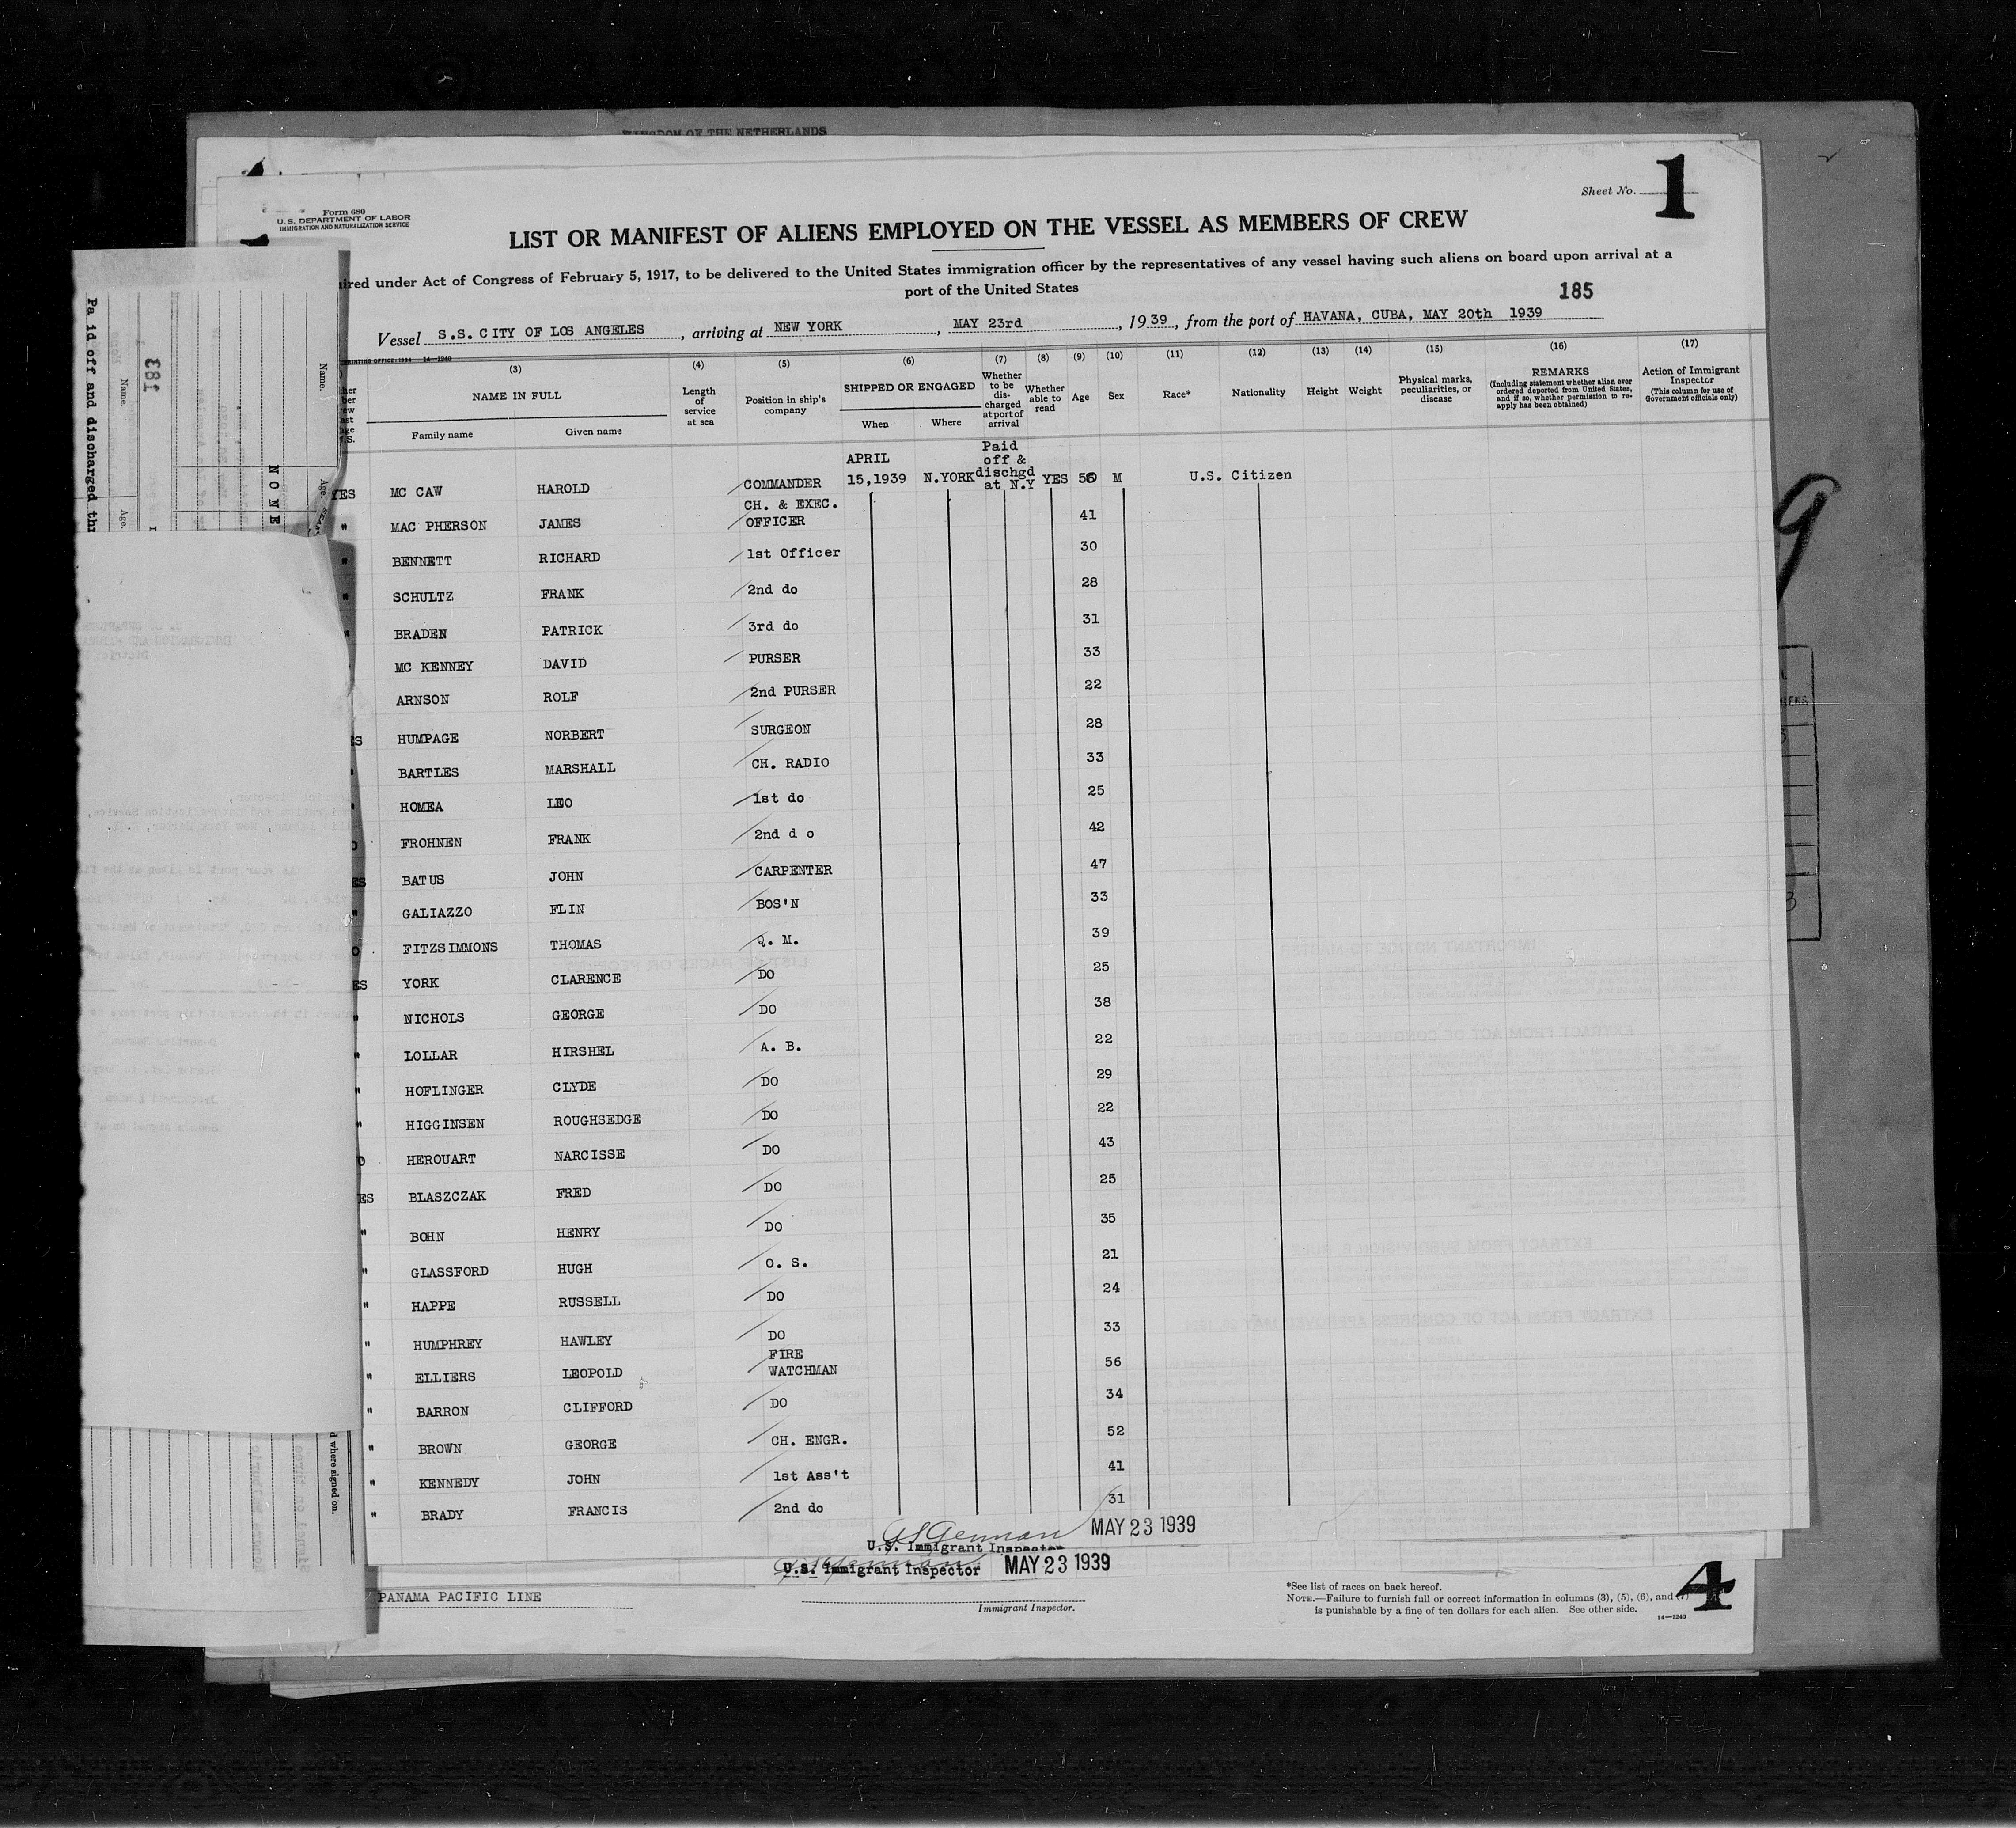 KINGDOM OF THE NETHERLANDS
Sheet No. 1
Form 680
U. S. DEPARTMENT OF LABOR
IMMIGRATION AND NATURALIZATION SERVICE
LIST OR MANIFEST OF ALIENS EMPLOYED ON THE VESSEL AS MEMBERS OF CREW
ired under Act of Congress of February 5, 1917, to be delivered to the United States immigration officer by the representatives of any vessel having such aliens on board upon arrival at a
port of the United States
185
Vessel S.S. CITY OF LOS ANGELES, arriving at NEW YORK, MAY 23rd, 1939, from the port of HAVANA, CUBA, MAY 20th 1939
(3) (4) (5) (6) (7) (8) (9) (10) (11) (12) (13) (14) (15) (16) (17)
NAME IN FULL
Family name
Given name
Length of service at sea
Position in ship's company
SHIPPED OR ENGAGED
When
Where
Whether to be discharged at port of arrival
Whether able to read
Age
Sex
Race*
Nationality
Height
Weight
Physical marks, peculiarities, or disease
REMARKS
(Including statement whether alien ever ordered deported from United States, and if so, whether permission to reapply has been obtained)
Action of Immigrant Inspector
(This column for use of Government officials only)
YES MC CAW HAROLD COMMANDER APRIL 15,1939 N.YORK Paid off & dischgd at N.Y YES 50 M U.S. Citizen
" MAC PHERSON JAMES CH. & EXEC. OFFICER 41
" BENNETT RICHARD 1st Officer 30
" SCHULTZ FRANK 2nd do 28
" BRADEN PATRICK 3rd do 31
MC KENNEY DAVID PURSER 33
ARNSON ROLF 2nd PURSER 22
ES HUMPAGE NORBERT SURGEON 28
" BARTLES MARSHALL CH. RADIO 33
" HOMEA LEO 1st do 25
O FROHNEN FRANK 2nd d o 42
ES BATUS JOHN CARPENTER 47
" GALIAZZO FLIN BOS'N 33
O FITZSIMMONS THOMAS Q. M. 39
ES YORK CLARENCE DO 25
" NICHOLS GEORGE DO 38
" LOLLAR HIRSHEL A. B. 22
" HOFLINGER CLYDE DO 29
" HIGGINSEN ROUGHSEDGE DO 22
O HEROUART NARCISSE DO 43
ES BLASZCZAK FRED DO 25
" BOHN HENRY DO 35
" GLASSFORD HUGH O. S. 21
" HAPPE RUSSELL DO 24
" HUMPHREY HAWLEY DO 33
" ELLIERS LEOPOLD FIRE WATCHMAN 56
" BARRON CLIFFORD DO 34
" BROWN GEORGE CH. ENGR. 52
" KENNEDY JOHN 1st Ass't 41
" BRADY FRANCIS 2nd do 31
MAY 23 1939
U.S. Immigrant Inspector
U.S. Immigrant Inspector MAY 23 1939
PANAMA PACIFIC LINE
Immigrant Inspector.
*See list of races on back hereof.
NOTE.—Failure to furnish full or correct information in columns (3), (5), (6), and (7)
is punishable by a fine of ten dollars for each alien. See other side.
14—1240
4
Pa id off and discharged thi
Name.
Age.
183
Name.
Age.
NONE
d where signed on.
9